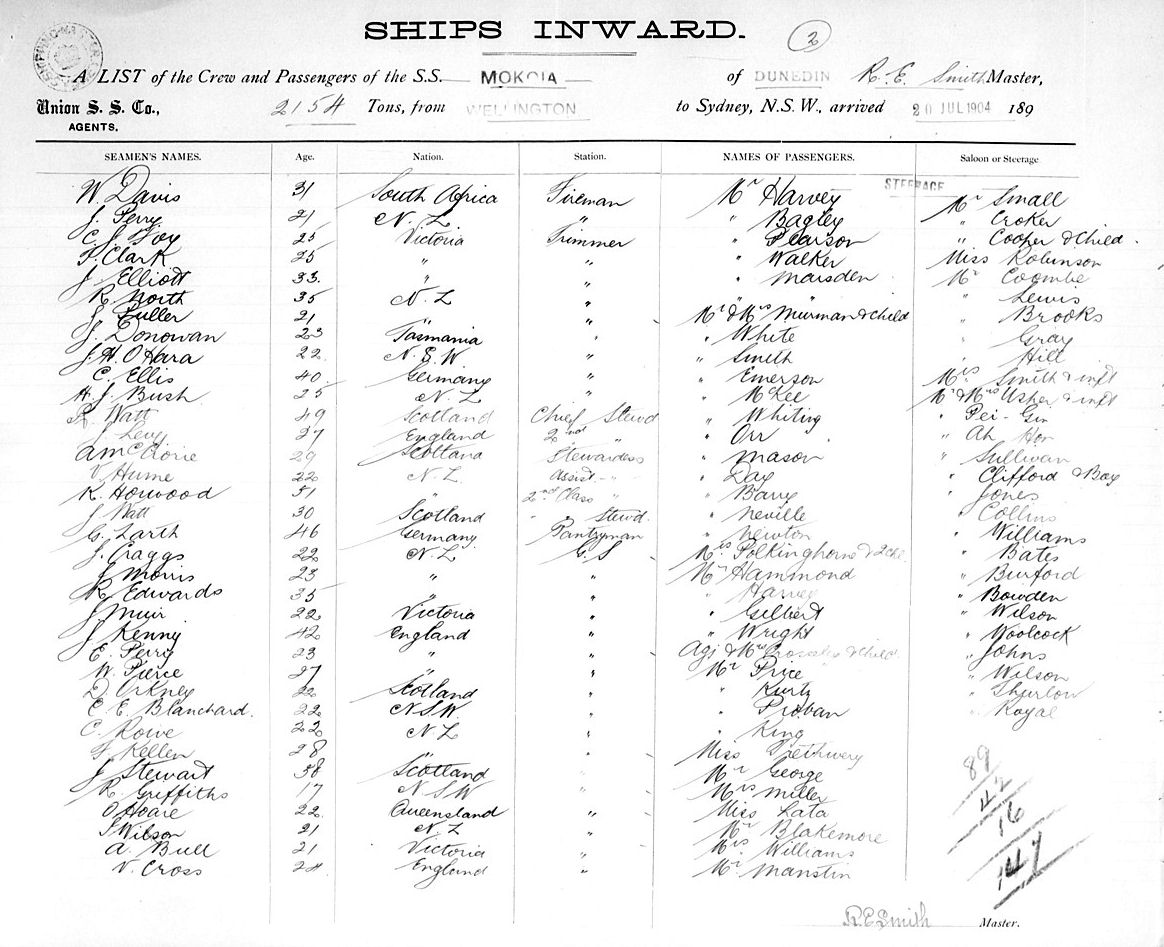 SHIPS INWARD.
2
A LIST of the Crew and Passengers of the S.S. MOKOIA of DUNEDIN R. E. Smith Master,
Union S. S. Co., 2154 Tons, from WELLINGTON to Sydney, N.S.W., arrived 20 JUL 1904 189
AGENTS.
SEAMEN'S NAMES. Age. Nation. Station. NAMES OF PASSENGERS. Saloon or Steerage
STEERAGE
W. Davis 31 South Africa Fireman Mr Harvey Mr Small
J. Perry 21 N. Z. " " Bagley " Croker
C. J. Foy 25 Victoria Trimmer " Pearson " Cooper & Child.
F. Clark 25 " " " Walker Miss Robinson
J. Elliott 33. " " " Marsden Mr Coombe
R. North 35 N. Z " " " Lewis
J. Fuller 21 " " Mr & Mrs Muirman & child " Brooks
J. Donovan 23 Tasmania " " White " Gray
J. H. O'Hara 22 N. S. W. " " Smith " Hill
C. Ellis 40 Germany " " Emerson Mrs Smith & inft
H. J. Bush 25 N. Z " " McKee Mr & Mrs Usher & inft
R. Watt 49 Scotland Chief Stewd " Whiting " Pei - Gin
J. Levy 27 England 2nd " " Orr " Ah Hor
A McRorie 29 Scotland Stewardess " Mason " Sullivan
V. Hume 22 N. Z. Assist. " " Day " Clifford & Boy
K. Horwood 31 " 2nd Class " " Barry " Jones
J. Watt 30 Scotland " Stewd. " Neville " Collins
G. Zarth 46 Germany Pantryman " Newton " Williams
J. Craggs 22 N. Z G. S Mrs Polkinghorne & 2 che " Bates
J Morris 23 " " Mr Hammond " Burford
R. Edwards 35 " " " Harvey " Bowden
J Muir 22 Victoria " " Gilbert " Wilson
J. Kenny 42 England " " Wright " Woolcock
E. Perry 23 " " Agj & Mrs Crossley & Child. " Johns
W. Pierce 27 " " Mr Price " Wilson
D. Orkney 22 Scotland " " Kurtz " Thurlow
C. E. Blanchard. 22 N S W. " " Provan " Royal
C. Rowe 22 N Z " " King
F. Kellen 28 " " Miss Trethwery
J. Stewart 38 Scotland " Mr George
R. Griffiths 17 N S W " Mrs Miller
O Hoare 22 Queensland " Miss Lata
J Wilson 21 N. Z " Mr Blakemore
A. Bull 21 Victoria " Mrs Williams
N. Cross 24 England " Mr Manstin
89
42
16
147
R. E. Smith Master.